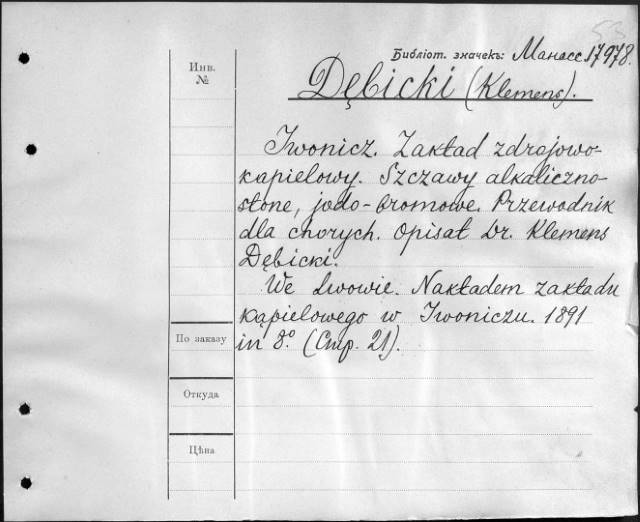 53
Библіот. значекъ: Манасс 17978.
Инв.
№
Dębicki (Klemens).
Iwonicz. Zakład zdrojowo-
kąpielowy. Szczawy alkaliczno-
słone, jodo-bromowe. Przewodnik
dla chorych. Opisał Dr. Klemens
Dębicki.
We Lwowie. Nakładem zakładu
kąpielowego w Iwoniczu. 1891
in 8.° (Стр. 21).
По заказу
Откуда
Цѣна